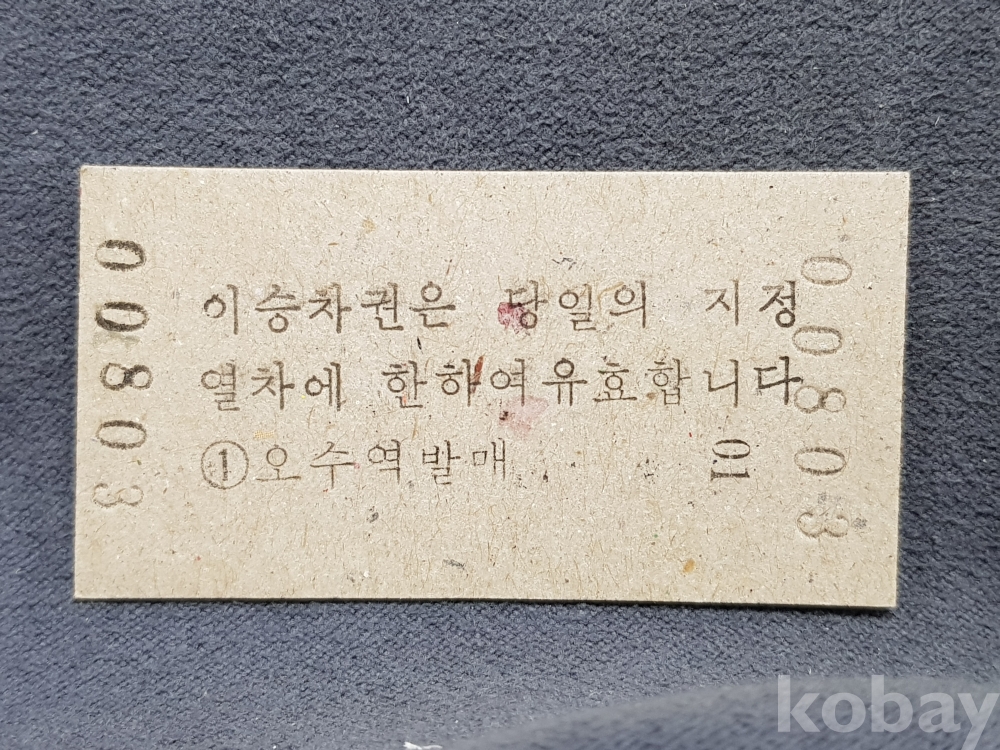 이승차권은 당일의 지정
열차에 한하여유효합니다
①오수역발매 01
00803
00803
kobay